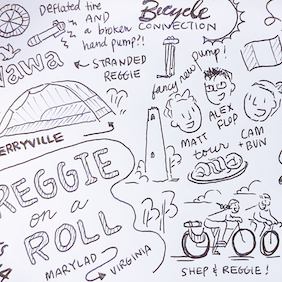 Deflated tire
AND
a broken
hand pump?!
Bicycle
CONNECTION
wawa
STRANDED
REGGIE
fancy new pump!
MATT
ALEX
FLOP
CAM
+ BUN
tour
ERRYVILLE
REGGIE
on a
ROLL
MARYLAD
VIRGINIA
SHEP & REGGIE!